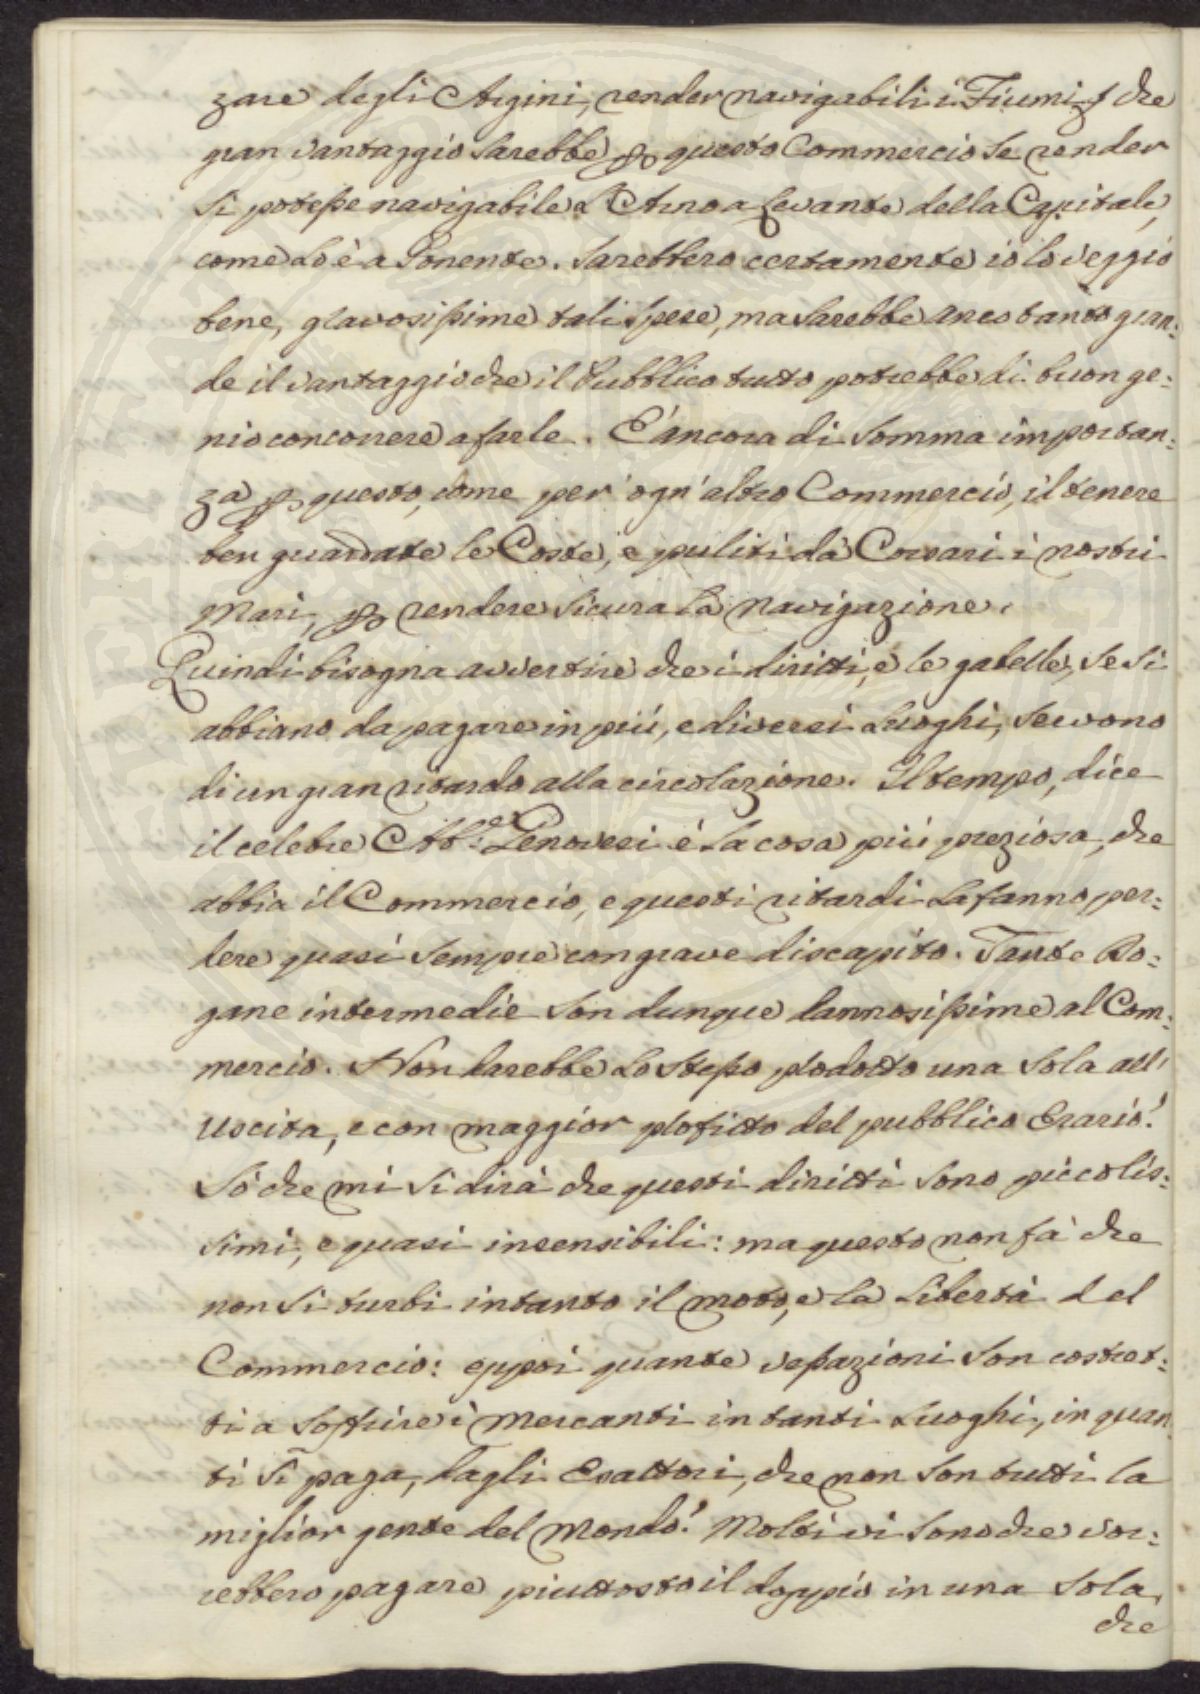 zare degli Argini, render navigabili i Fiumi, che
gran vantaggio sarebbe p questo Commercio se render
si potesse navigabile l'Arno a Levante della Capitale,
come lo è a Ponente. Sarebbero certamente io lo veggio
bene, gravosissime tali spese, ma sarebbe anco tanto gran:
de il vantaggio che il Pubblico tutto potrebbe di buon ge:
nio concorrere a farle. E' ancora di somma importan:
za p questo, come per ogn'altro Commercio, il tenere
ben guardate le Coste, e puliti da Corsari i nostri
Mari, p rendere sicura la navigazione.
Quindi bisogna avvertire che i diritti, e le gabelle, se si
abbiano da pagare in più, e diversi Luoghi, servono
di un gran ritardo alla circolazione. Il tempo, dice
il celebre Abb.e Genovesi è la cosa più preziosa, che
abbia il Commercio, e questi ritardi la fanno per:
dere quasi sempre con grave discapito. Tante Do:
gane intermedie son dunque dannosissime al Com:
mercio. Non darebbe lo stesso prodotto una sola all'
uscita, e con maggior profitto del pubblico Erario!
Sò che mi si dirà che questi diritti sono piccolis:
simi, e quasi insensibili: ma questo non fà che
non si turbi intanto il moto, e la libertà del
Commercio: eppoi quante vessazioni son costret:
ti a soffrire i Mercanti in tanti Luoghi, in quan
ti si paga, dagli Esattori, che non son tutti la
miglior gente del Mondo! Molti vi sono che vor:
rebbero pagare piuttosto il doppio in una sola,
che